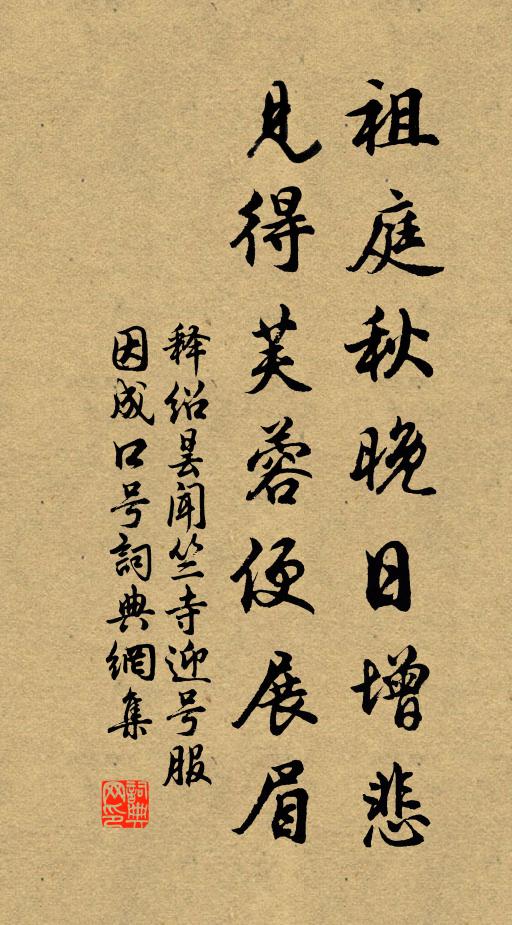 祖庭秋晚日增悲
見得芙蓉便展眉
释绍昙闻竺寺迎号服
因成口号詞典網集
詞典网印